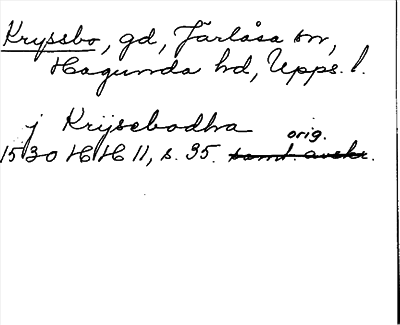 Kryssbo, gd, Järlåsa sn,
Hagunda hd, Upps. l.
j Krijsebodha
orig.
1530 HH 11, s. 35. samt. avskr.